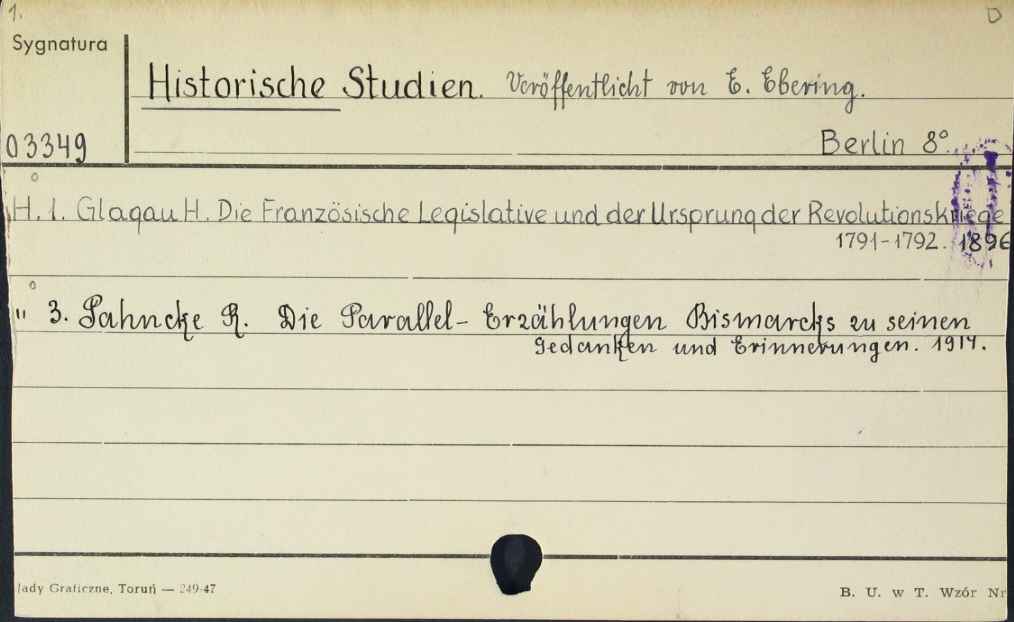 1. D
Sygnatura
Historische Studien. Veröffentlicht von E. Ebering.
03349 Berlin 8°.
H. 1. Glagau H. Die Französische Legislative und der Ursprung der Revolutionskriege
1791-1792. 1896
" 3. Pahncke R. Die Parallel-Erzählungen Bismarcks zu seinen
Gedanken und Erinnerungen. 1914.
łady Graficzne, Toruń — 249-47 B. U. w T. Wzór Nr